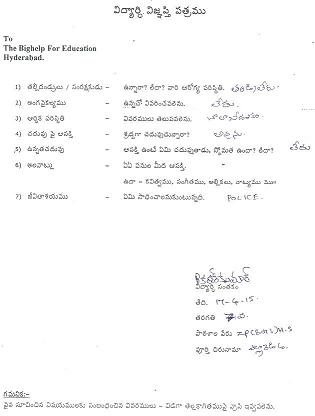 విద్యార్థి విజ్ఞప్తి పత్రము
To
The Bighelp For Education
Hyderabad.
1) తల్లిదండ్రులు / సంరక్షకుడు - ఉన్నారా? లేదా? వారి ఆరోగ్య పరిస్థితి. తండ్రి లేరు
2) అంగవైకల్యము - ఉన్నచో వివరించవలెను. లేదు.
3) ఆర్థిక పరిస్థితి - వివరములు తెలుపవలెను.
4) చదువు పై ఆసక్తి - శ్రద్ధగా చదువుతున్నారా?
5) ఉన్నతచదువు - ఆసక్తి ఉంటే ఏమి చదువుతాడు, స్తోమత ఉందా? లేదా? లేదు
6) అలవాట్లు - ఏఏ పనుల మీద ఆసక్తి.
ఉదా - కవిత్వము, సంగీతము, అల్లికలు, నాట్యము మొ॥
7) జీవితాశయము - ఏమి సాధించాలనుకుంటున్నది. POLICE.
విద్యార్థి సంతకం
తేది. 17-4-15.
తరగతి
పాఠశాల పేరు ZP(BHS)H.S
పూర్తి చిరునామా
గమనిక:-
పైన సూచించిన విషయములకు సంబంధించిన వివరములు - విడిగా తెల్లకాగితముపై వ్రాసి ఇవ్వవలెను.